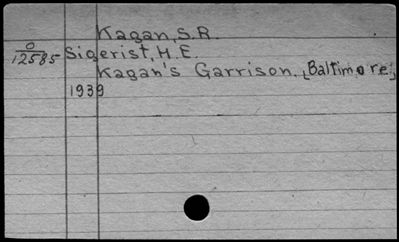 Kagan, S.R.
0
12585 Sigerist, H.E.
Kagan's Garrison. [Baltimore]
1939